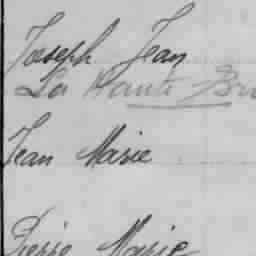 Joseph Jean
La Haute
Jean Marie
Pierre Marie